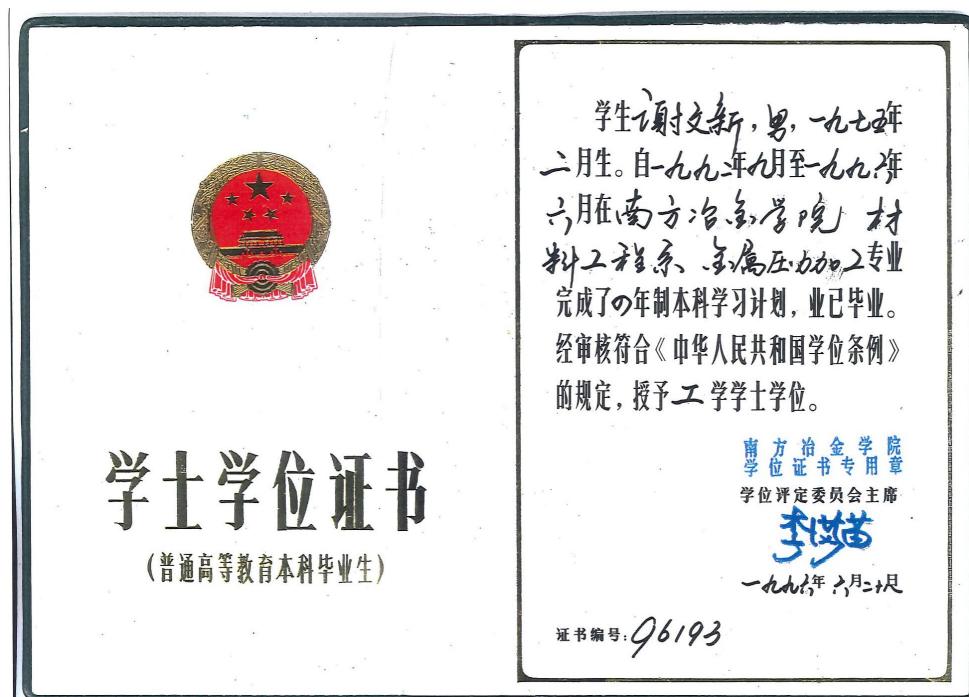 学士学位证书
(普通高等教育本科毕业生)
学生谢文新,男,一九七五年
二月生。自一九九二年九月至一九九六年
六月在南方冶金学院 材
料工程系、金属压力加工专业
完成了四年制本科学习计划,业已毕业。
经审核符合《中华人民共和国学位条例》
的规定,授予工学学士学位。
南方冶金学院
学位证书专用章
学位评定委员会主席
一九九六年六月二十日
证书编号:96193